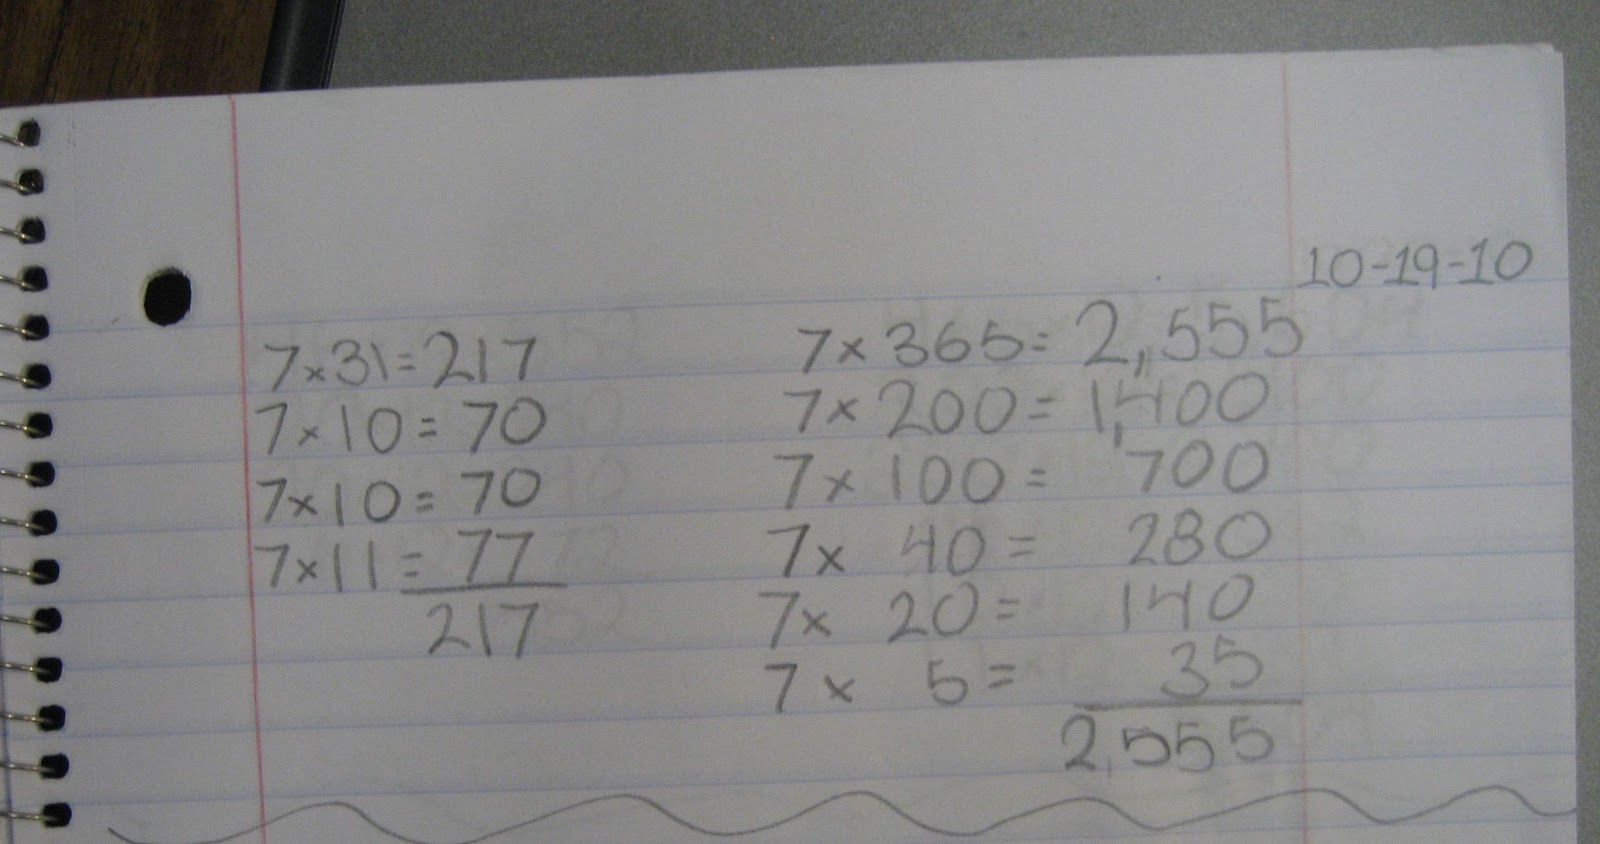 10-19-10
7×31=217
7×10=70
7×10=70
7×11=77
217
7× 365= 2,555
7× 200= 1,400
7× 100= 700
7× 40= 280
7× 20= 140
7× 5= 35
2,555